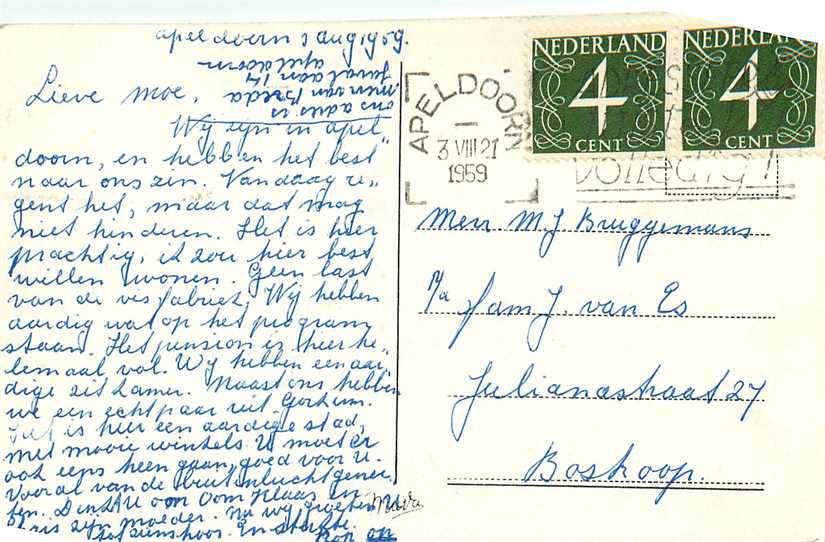 apeldoorn 3 aug 1959.
Lieve moe,
ons adres is
men van Breda
laan 14
apeldoorn
Wij zijn in apel„
doorn, en hebben het best
naar ons zin. Vandaag re„
gent het, maar dat mag
niet hinderen. Het is hier
prachtig, ik zou hier best
willen wonen. Geen last
van de vis fabriek. Wij hebben
aardig wat op het program
staan. Het pension is hier he„
lemaal vol. Wij hebben een aar„
dige zit kamer. Naast ons hebben
we een echtpaar uit Gorkum.
Het is hier een aardige stad,
met mooie winkels. U moet er
ook eens heen gaan, goed voor u.
Vooral van de buitenlucht genie„
ten. Denkt U om Oom Klaas en
zijn moeder. Nu wij groeten
tot ziens hoor. En sterkte.
Kop op
APELDOORN
3 VIII 21
1959
volledig!
NEDERLAND
4
CENT
NEDERLAND
4
CENT
Mevr M J Bruggemans
p/a fam J. van Es
Julianastraat 27
Boskoop.